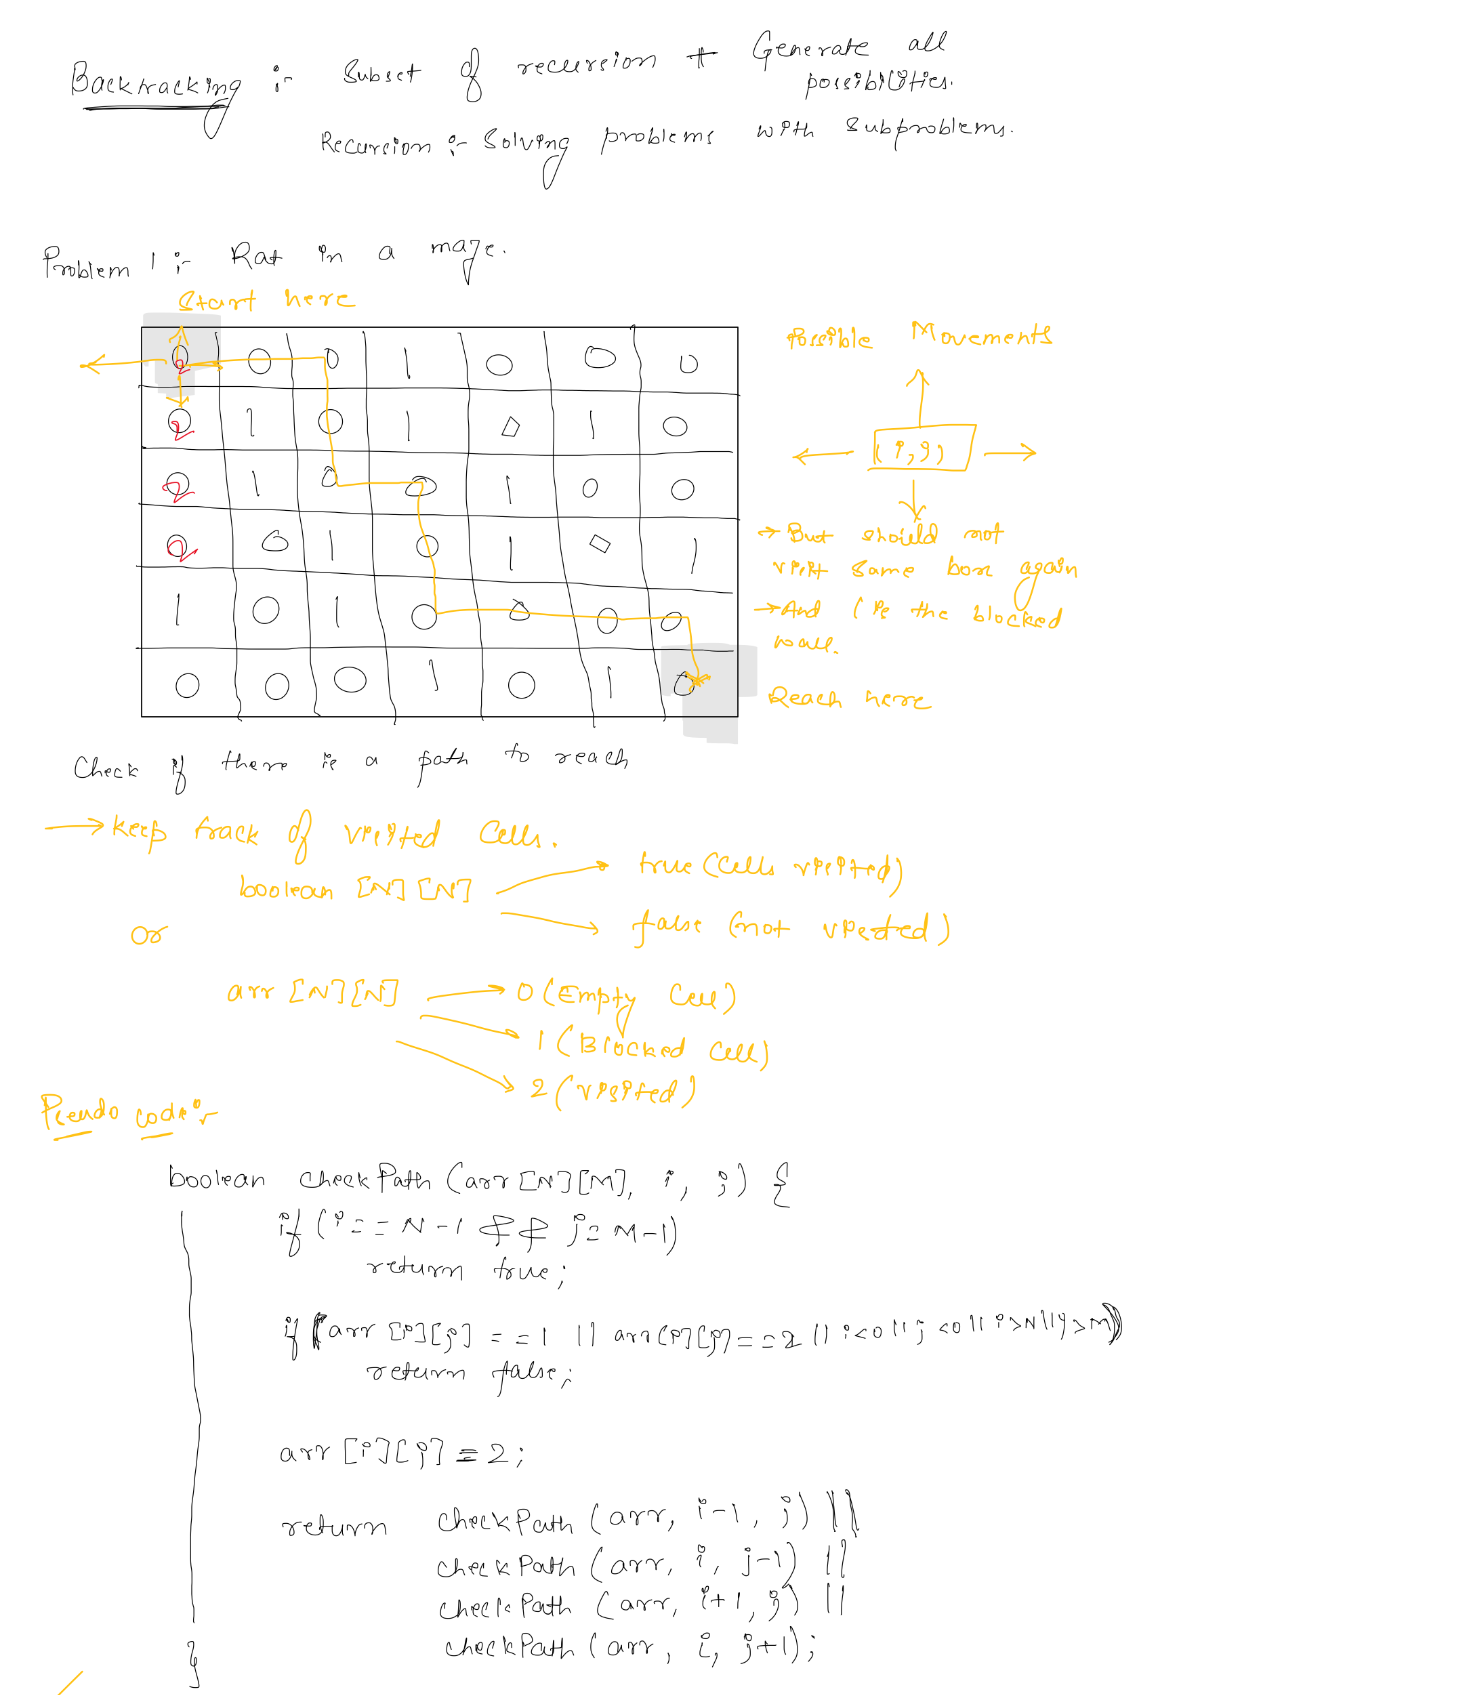 Backtracking :- Subset of recursion + Generate all possibilities.
Recursion :- Solving problems with subproblems.
Problem 1 :- Rat in a maze.
Start here
0 0 0 1 0 0 0
0 1 0 1 0 1 0
0 1 0 0 1 0 0
0 0 1 0 1 0 1
1 0 1 0 0 0 0
0 0 0 1 0 1 0
2
2
2
2
Possible Movements
(i,j)
→ But should not
visit same box again
→ And 1 is the blocked
wall.
Reach here
Check if there is a path to reach
→ keep track of visited cells.
boolean [N][N] → true (cells visited)
→ false (not visited)
Or
arr [N][N] → 0 (Empty Cell)
→ 1 (Blocked Cell)
→ 2 (visited)
Pseudo code :-
boolean checkPath (arr[N][M], i, j) {
if (i == N-1 && j = M-1)
return true;
if (arr [i][j] == 1 || arr[i][j] == 2 || i<0 || j<0 || i>N || j>M)
return false;
arr [i][j] = 2;
return checkPath (arr, i-1, j) ||
checkPath (arr, i, j-1) ||
checkPath (arr, i+1, j) ||
checkPath (arr, i, j+1);
}